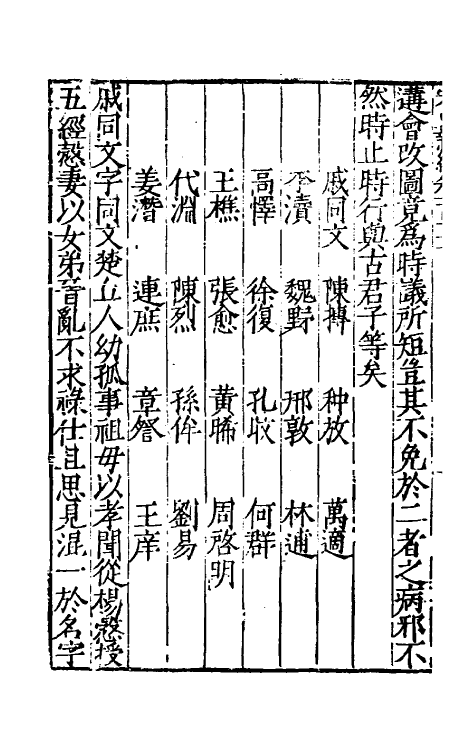 遘會改圖竟為時議所短豈其不免於二者之病邪不
然時止時行與古君子等矣
戚同文 陳摶 种放 萬適
李瀆 魏野 邢敦 林逋
高懌 徐復 孔旼 何群
王樵 張愈 黄晞 周啓明
代淵 陳烈 孫侔 劉易
姜潛 連庶 章詧 王庠
戚同文字同文楚丘人幼孤事祖毋以孝聞從楊慤授
五經慤妻以女弟晉亂不求祿仕且思見混一於名字